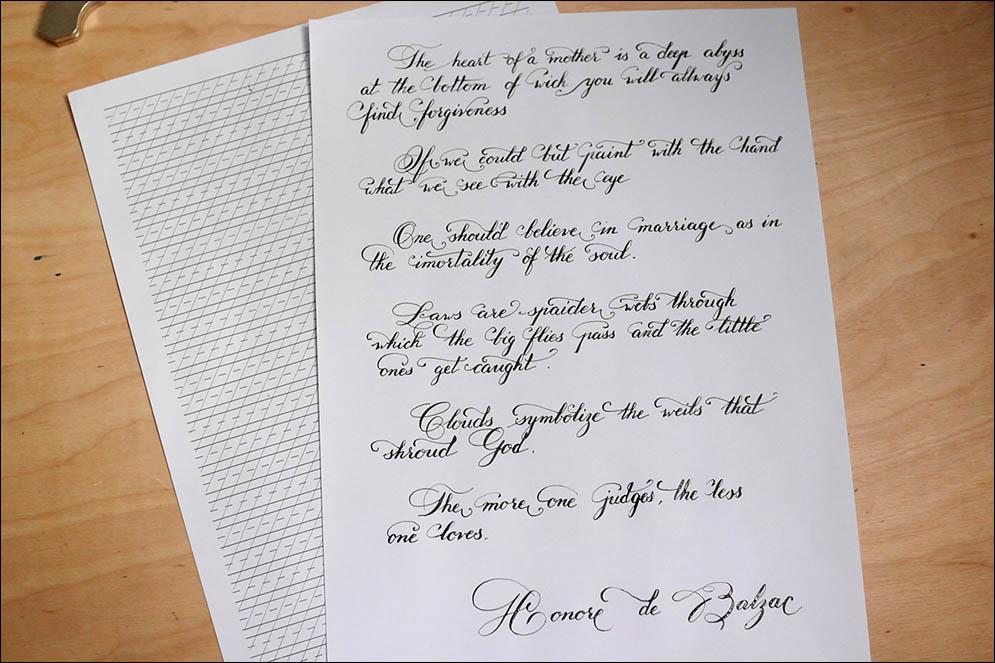 The heart of a mother is a deep abyss
at the bottom of wich you will allways
find forgiveness
If we could but paint with the hand
what we see with the eye
One should believe in marriage as in
the imortality of the soul.
Laws are spaider webs through
which the big flies pass and the little
ones get caught.
Clouds symbolize the weils that
shroud God.
The more one judges, the less
one loves.
Honore de Balzac